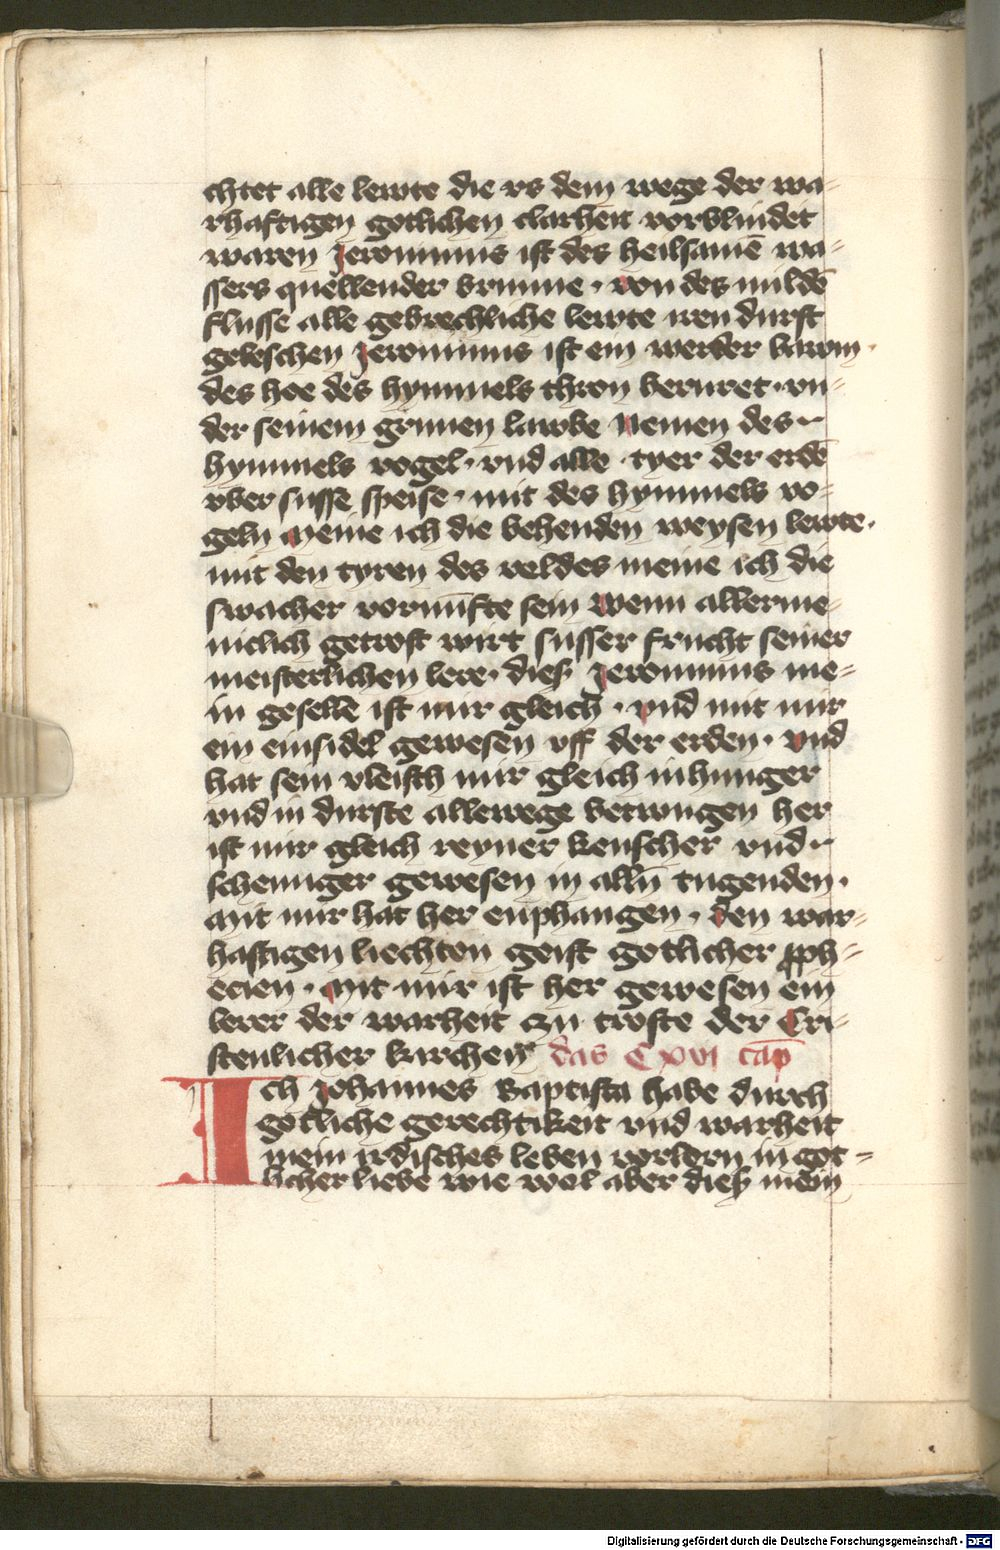 chtet alle lewte die vs dem wege der wa-
rhaftigen gotlichen clarheit vorblindet
waren Jeronimus ist des heilsamē wa-
ssers quellender brunne · von des mildē
flusse alle gebrechliche lewte iren durst
geleschen Jeronimus ist ein werder bawm ·
des hoe des hymmels thron beruret · vn-
der seinem grunen lawbe Nemen des
hymmels vogel · vnd alle tyer der erdē
vber susse speise · mit des hymmels vo-
geln Meine ich die behenden weysen lewte ·
mit den tyren des veldes meine ich die
swacher vornūfte sein Wenn allerme-
niclich getrost wirt susser frucht seiner
meisterlichen lere · dieß Jeronimus me-
in geselle ist mir gleich · vnd mit mir
ein einsidel gewesen vff der erden · vnd
hat sein vleisch mir gleich in hunger
vnd in durste allewege betwngen her
ist mir gleich reyner keuscher vnd
schemiger gewesen in allñ tugenden ·
Mit mir hat her enphangen · den war-
haftigen liechten geist gotlicher pph-
ecien · Mit mir ist her gewesen ein
lerer der warheit czu troste der Cri-
stenlicher kirchen das CXVI cap
Ich Johannes Baptista habe durch
gotliche gerechtikeit vnd warheit
mein irdisches leben vorlorn in got-
licher liebe wie wol aber dieß mein
Digitalisierung gefördert durch die Deutsche Forschungsgemeinschaft - DFG